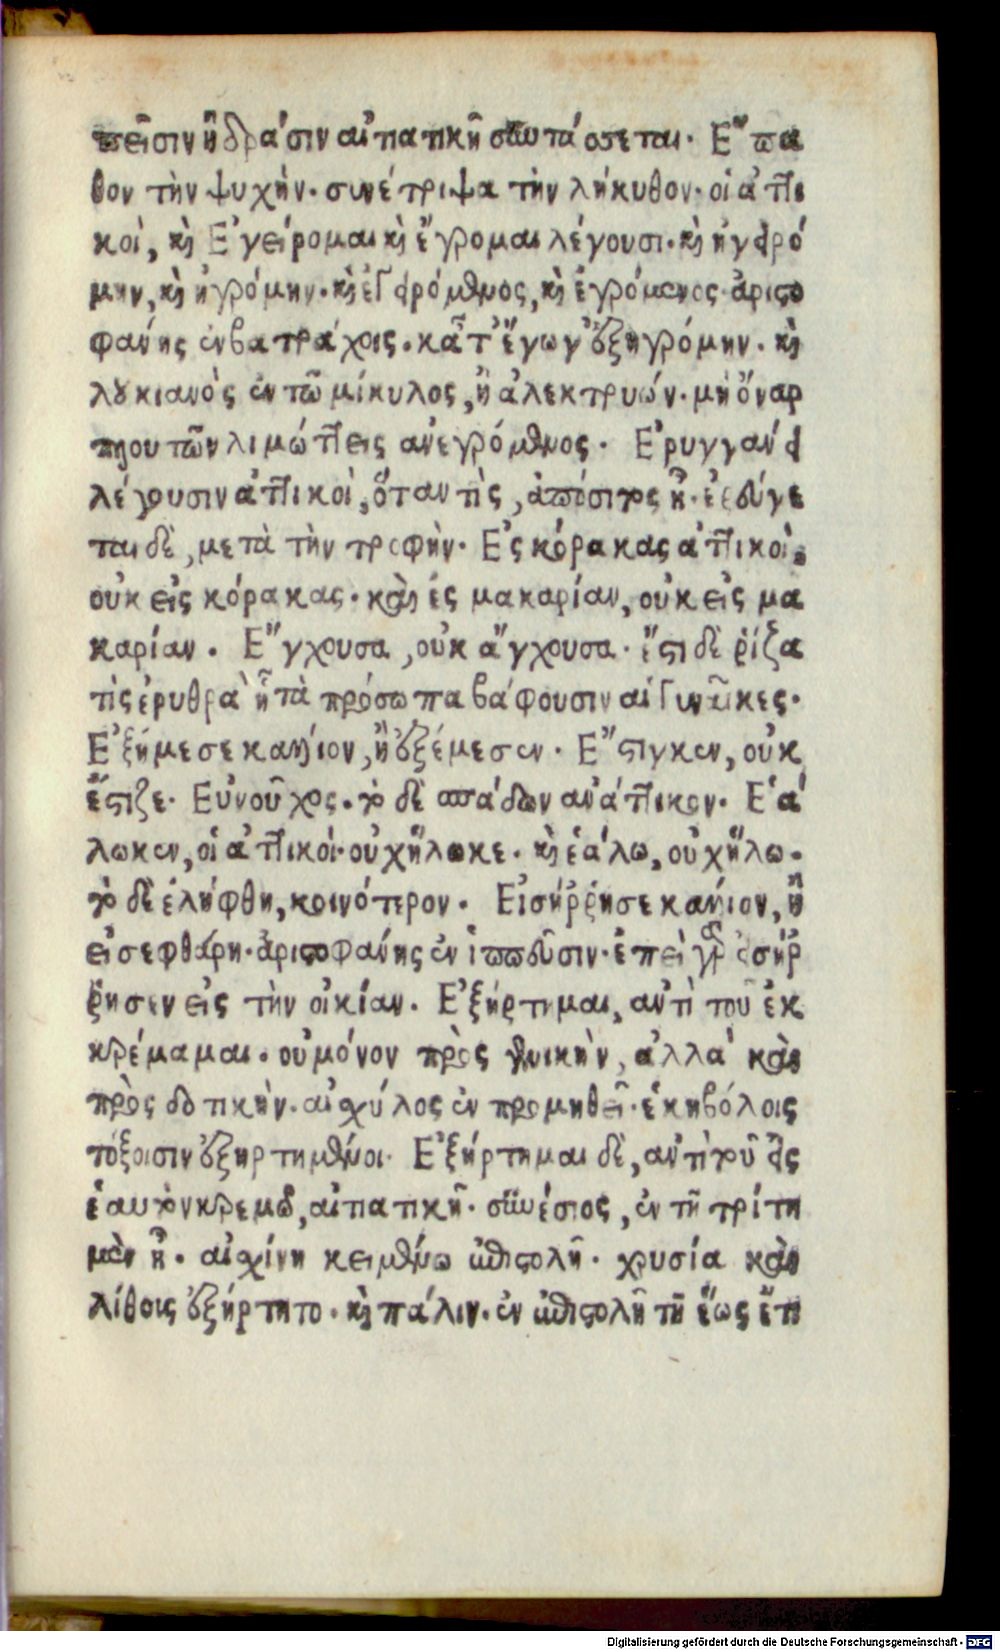 πεῖσιν ἢ δρᾶσιν αἰτιατικῇ συντάσσεται. Ἔπα
θον τὴν ψυχήν. συνέτριψα τὴν λήκυθον. οἱ ἀττι
κοὶ, καὶ Ἐγείρομαι καὶ ἔγρομαι λέγουσι. καὶ ἠγειρό
μην, καὶ ἠγρόμην. καὶ ἐγειρόμενος, καὶ ἐγρόμενος. ἀριστο
φάνης ἐν βατράχοις. κᾆτ' ἔγωγ' ἐξηγρόμην. καὶ
λουκιανὸς ἐν τῶ μίκυλος, ἢ ἀλεκτρυών. μὴ ὄναρ
που τῶν λιμώττεις ἀνεγρόμενος. Ἐρυγγάνει
λέγουσιν ἀττικοὶ, ὅταν τὶς, ἀπόσιτος ᾖ. ἐρεύγε
ται δὲ, μετὰ τὴν τροφὴν. Ἐς κόρακας ἀττικοὶ.
οὐκ εἰς κόρακας. καὶ ἐς μακαρίαν, οὐκ εἰς μα
καρίαν. Ἔγχουσα, οὐκ ἄγχουσα. ἔστι δὲ ῥίζα
τὶς ἐρυθρὰ ᾗ τὰ πρόσωπα βάφουσιν αἱ γυναῖκες.
Ἐξήμεσε κάλλιον, ἢ ἐξέμεσεν. Ἔστιγκεν, οὐκ
ἔστιζε. Εὐνοῦχος. τὸ δὲ σπάδων ἀνάττικον. Ἑά
λωκεν, οἱ ἀττικοὶ. οὐχ ἥλωκε. καὶ ἑάλω, οὐχ ἥλω.
τὸ δὲ ἐλήφθη, κοινότερον. Εἰσήῤῥησε κάλλιον, ἢ
εἰσεφθάρη. ἀριστοφάνης ἐν ἱππεῦσιν. ἐπεὶ γὰρ εἰσήῤ
ῥησεν εἰς τὴν οἰκίαν. Ἐξήρτημαι, ἀντὶ τοῦ ἐκ
κρέμαμαι. οὐ μόνον πρὸς γενικὴν, ἀλλὰ καὶ
πρὸς δοτικὴν. αἰσχύλος ἐν προμηθεῖ. ἑκηβόλοις
τόξοισιν ἐξηρτημένοι. Ἐξήρτημαι δὲ, ἀντὶ τοῦ εἰς
ἑαυτὸν κρεμῶ, αἰτιατικῇ. συνέσιος, ἐν τῇ τρίτῃ
μὲν ᾗ. αἰσχίνῃ κειμένω ἐπιστολῇ. χρυσία καὶ
λίθοις ἐξήρτητο. καὶ πάλιν. ἐν ἐπιστολῇ τῇ ἕως ἔτι
Digitalisierung gefördert durch die Deutsche Forschungsgemeinschaft - DFG